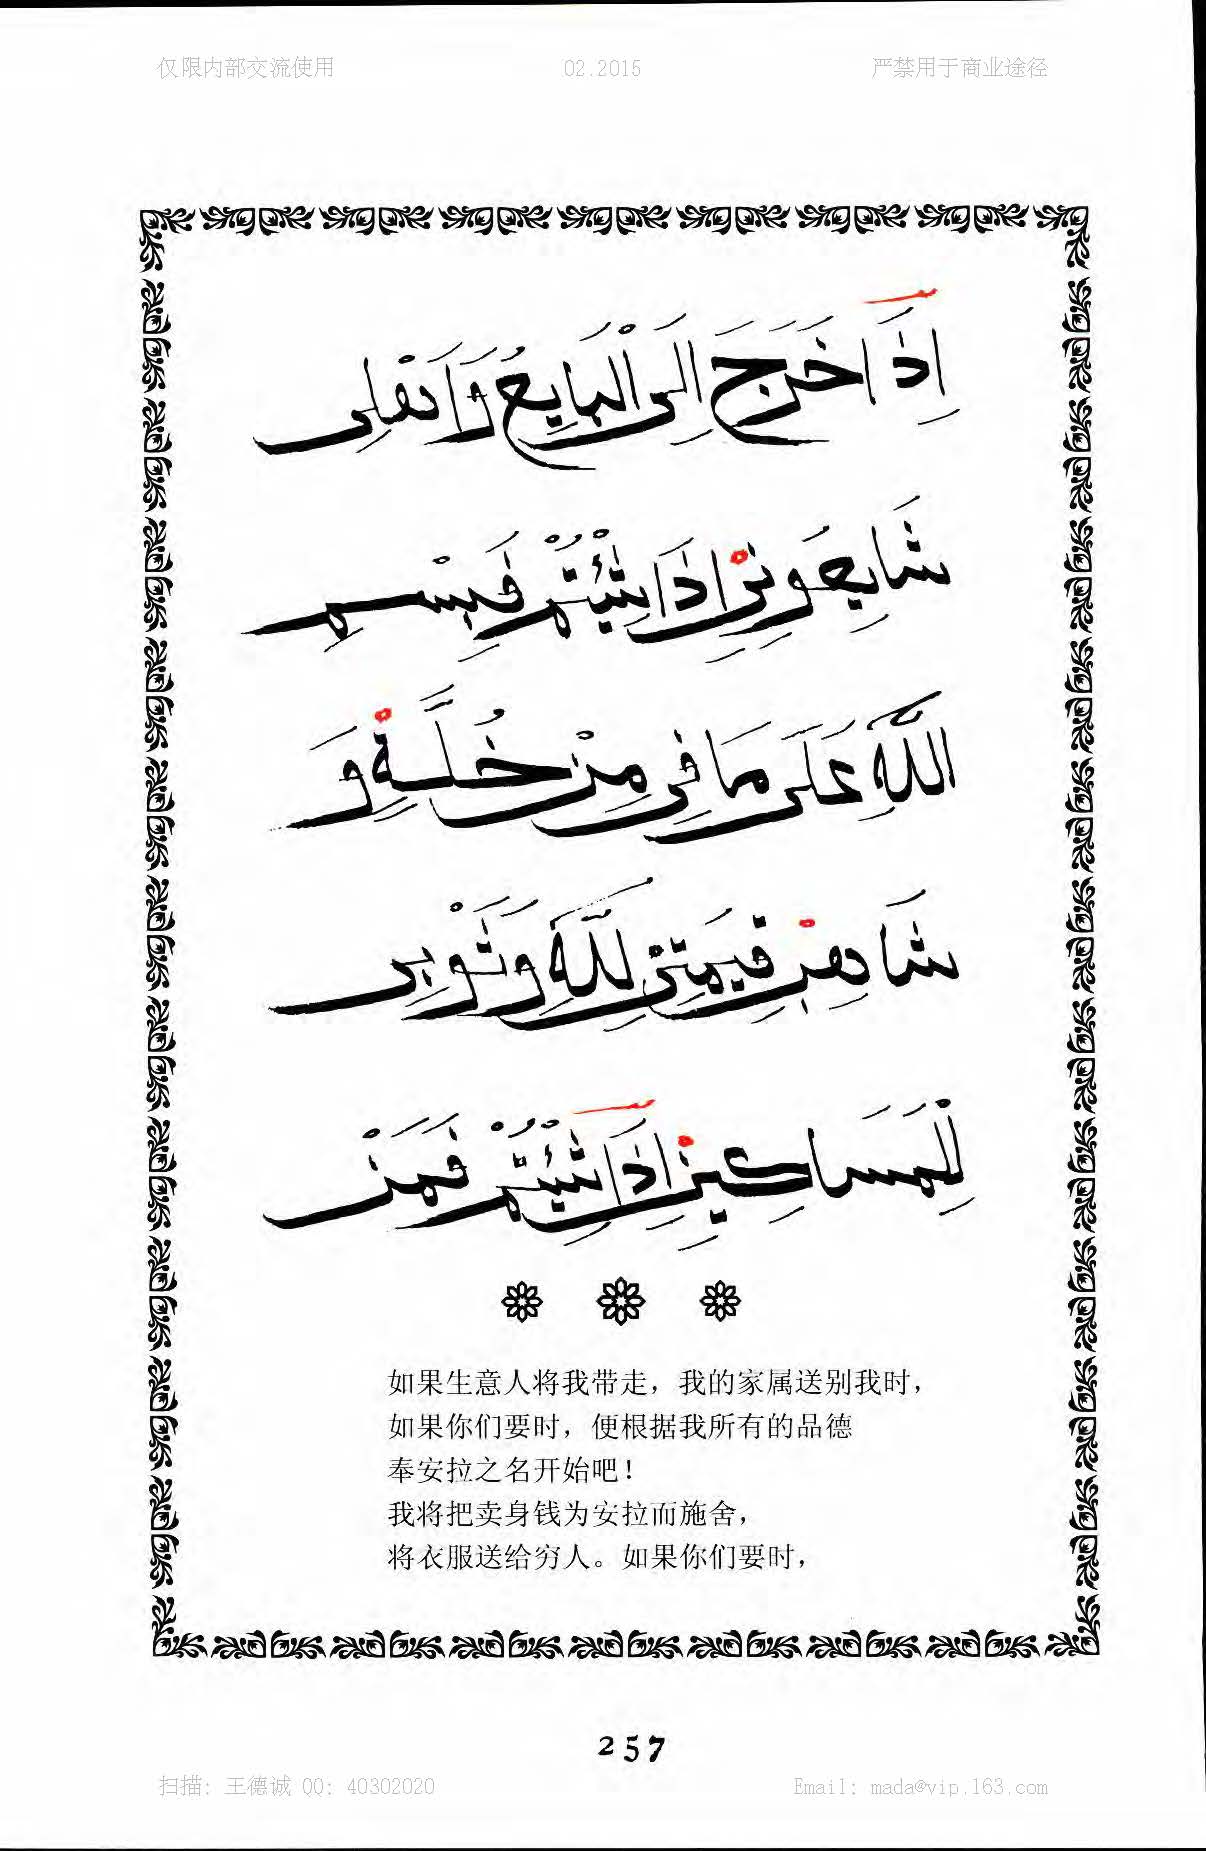 仅限内部交流使用 02.2015 严禁用于商业途径
اِذَا خَرَجَ اِلَى الْبَايِعُ وَاَهْلِى
شَايِعُونِى اِذَا شِئْتُمْ فَبِسْمِ
اللَّهِ عَلَى مَا فِى مِنْ خُلَّةٍ وَ
شَاهِبْ قِيمَتِى لِلَّهِ وَثَوْبِى
لِلْمَسَاكِينِ اِذَا شِئْتُمْ فَمَنْ
如果生意人将我带走，我的家属送别我时，
如果你们要时，便根据我所有的品德
奉安拉之名开始吧！
我将把卖身钱为安拉而施舍，
将衣服送给穷人。如果你们要时，
257
扫描: 王德诚 QQ: 40302020 Email: mada@vip.163.com